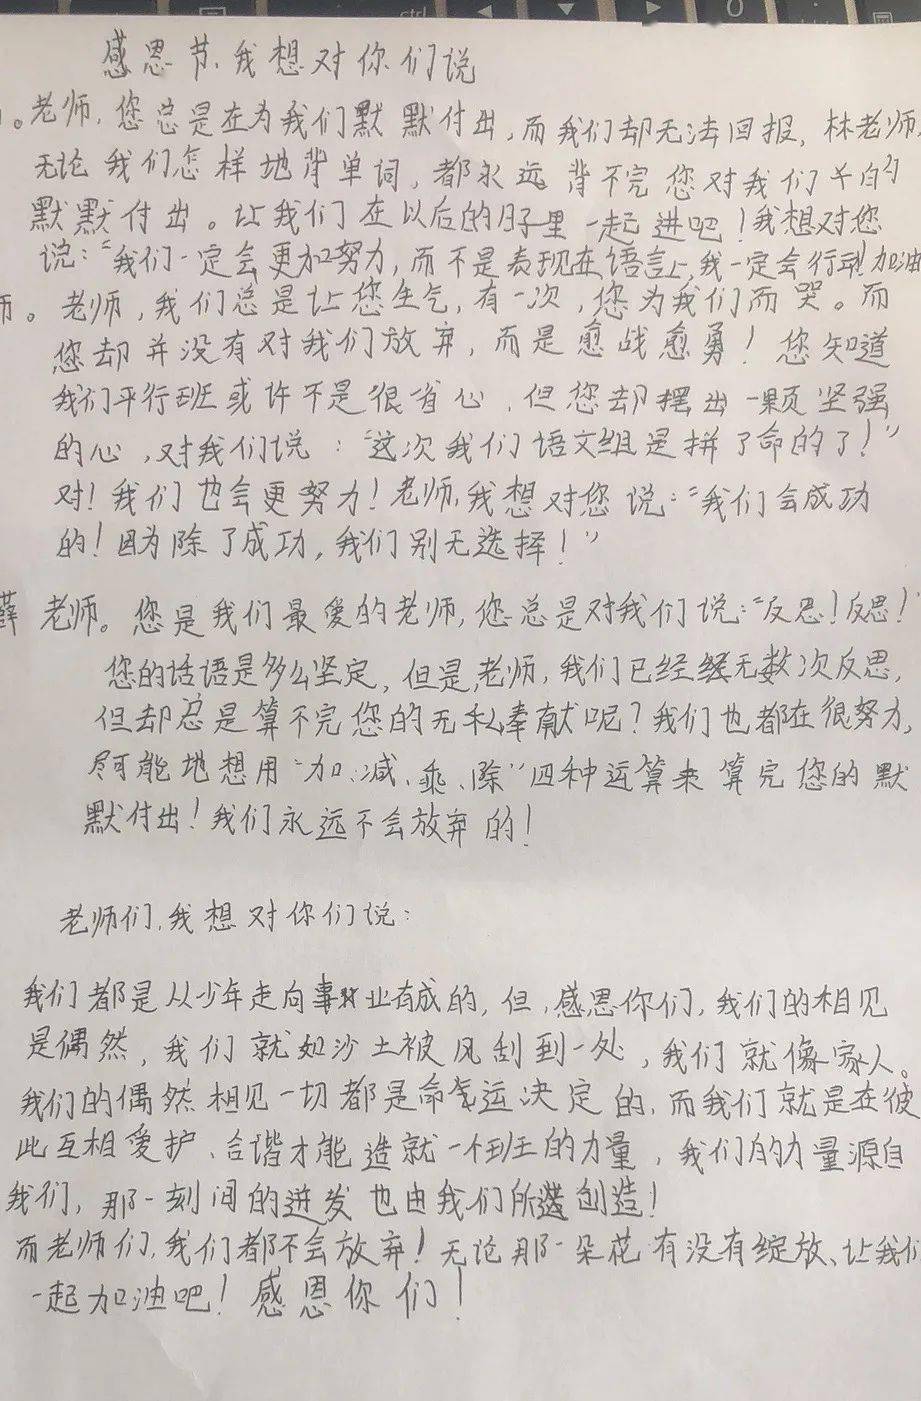 感恩节、我想对你们说
。老师，您总是在为我们默默付出，而我们却无法回报，林老师，
无论我们怎样地背单词，都永远背不完您对我们的
默默付出。让我们在以后的日子里一起进吧！我想对您
说：“我们一定会更加努力，而不是表现在语言上，我一定会行动！加油
师。老师，我们总是让您生气，有一次，您为我们而哭。而
您却并没有对我们放弃，而是愈战愈勇！您知道
我们平行班或许不是很省心，但您却摆出一颗坚强
的心，对我们说：“这次我们语文组是拼了命的了！”
对！我们也会更努力！老师，我想对您说：“我们会成功
的！因为除了成功，我们别无选择！”
薛老师。您是我们最爱的老师，您总是对我们说：“反思！反思！”
您的话语是多么坚定，但是，老师，我们已经经无数次反思，
但却总是算不完您的无私奉献呢？我们也都在很努力，
尽可能地想用“加、减、乘、除”四种运算来算完您的默
默付出！我们永远不会放弃的！
老师们，我想对你们说：
我们都是从少年走向事业有成的，但，感恩你们，我们的相见
是偶然，我们就如沙土被风刮到一处，我们就像家人。
我们的偶然相见一切都是命运决定的，而我们就是在彼
此互相爱护、合谐才能造就一个班的力量，我们的力量源自
我们，那一刻间的迸发也由我们所创造！
而老师们，我们都不会放弃！无论那一朵花有没有绽放、让我们
一起加油吧！感恩你们！